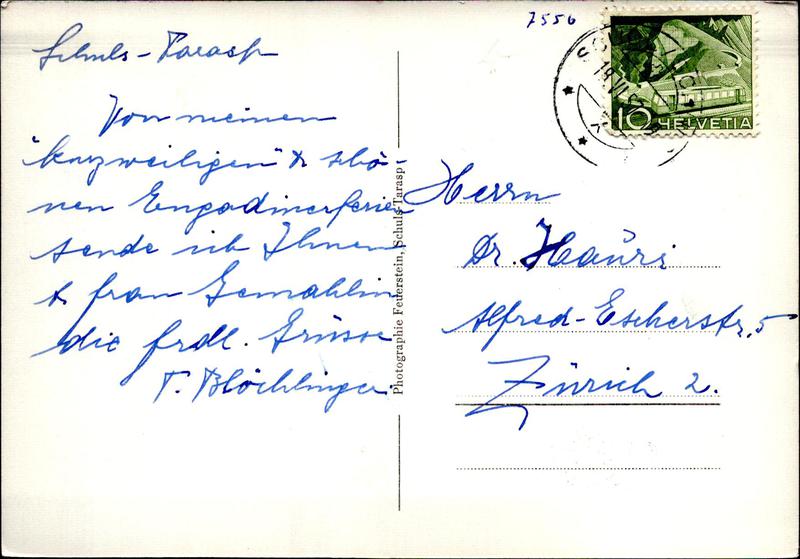 7556
HELVETIA
10
Schuls-Tarasp
Von meinen
"kurzweiligen" & schö-
nen Engadinerferien
sende ich Ihnen
& frau Gemahlin
die frdl. Grüsse
Blöchlinger.
Photographie Feuerstein, Schuls-Tarasp
Herrn
Dr. Hauri
Alfred-Escherstr. 5
Zürich 2.